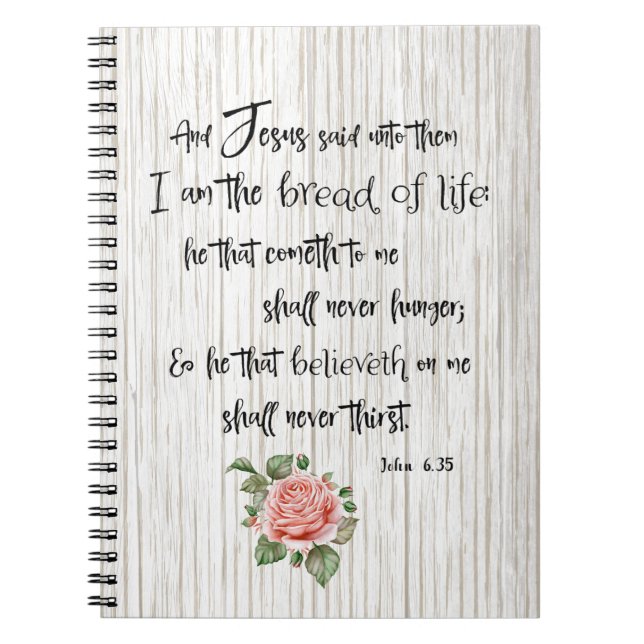 And Jesus said unto them
I am the bread of life:
he that cometh to me
shall never hunger;
& he that believeth on me
shall never thirst.
John 6.35